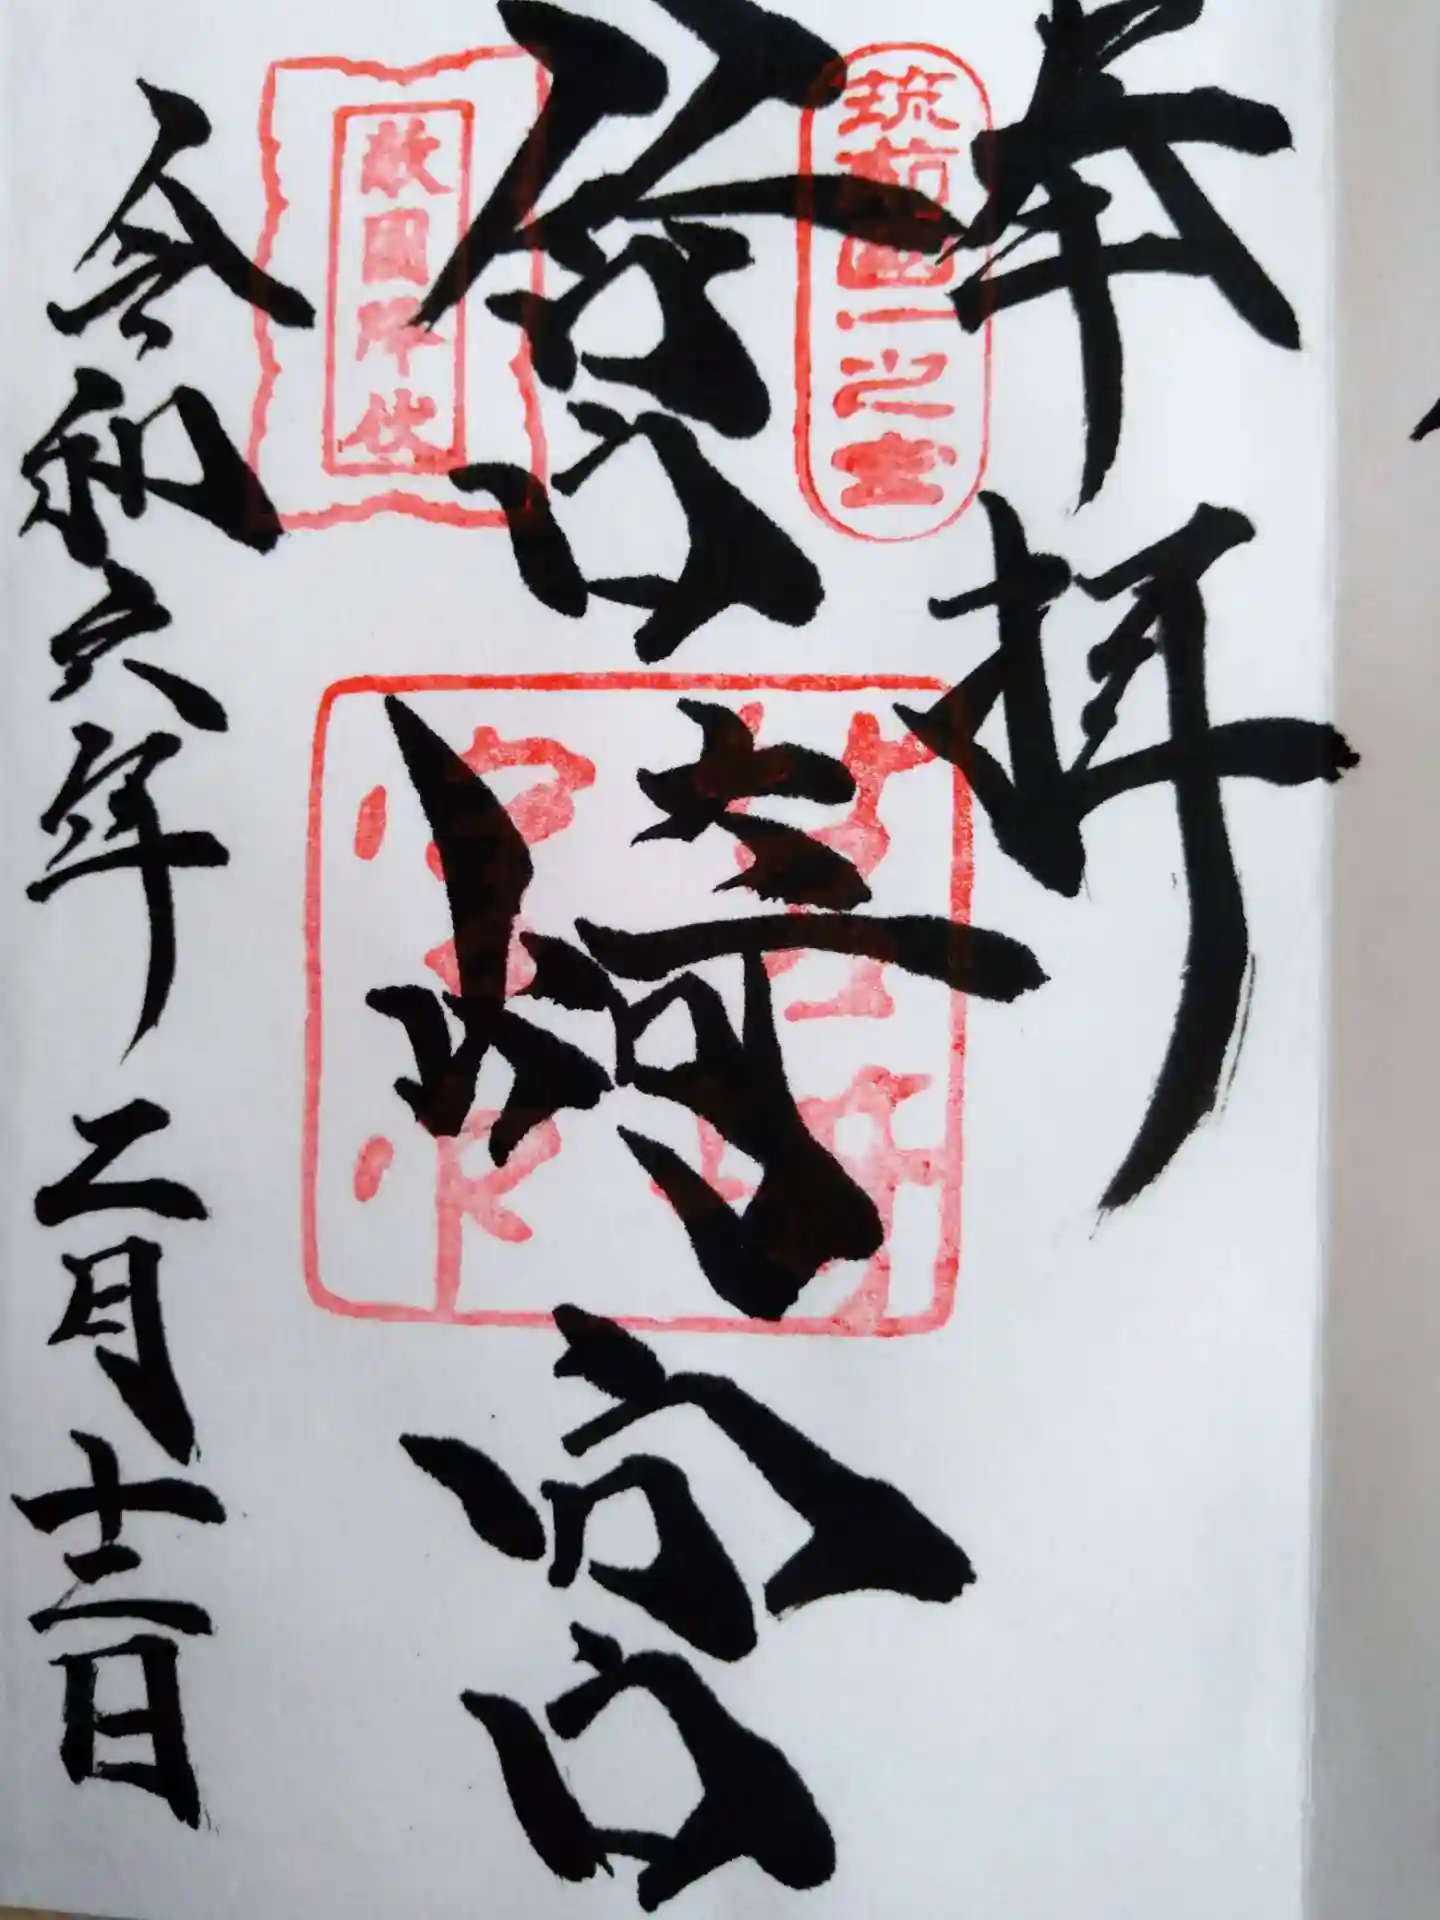 奉拝
筑前國一之宮
筥崎宮
敵國降伏
筥崎宮印
令和六年二月十二日